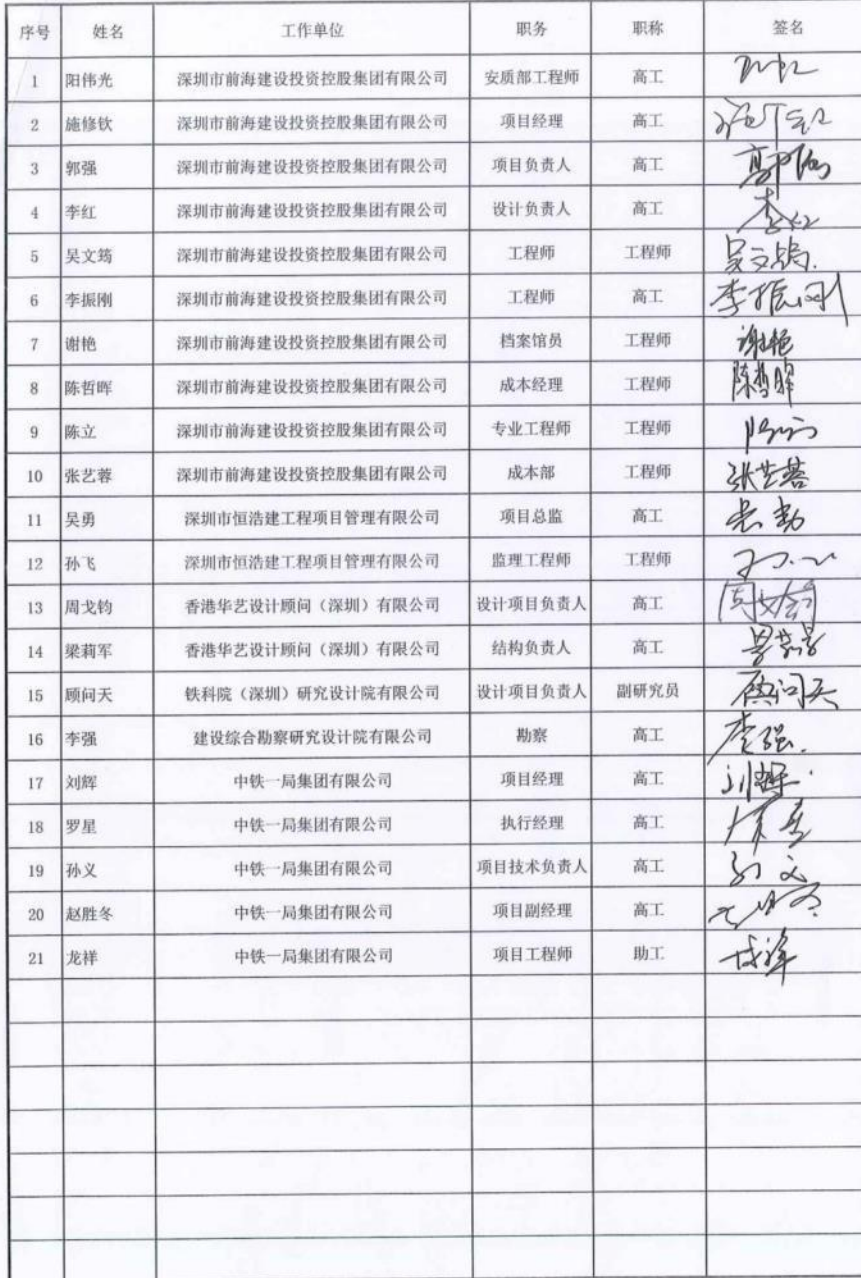 序号 姓名 工作单位 职务 职称 签名
1 阳伟光 深圳市前海建设投资控股集团有限公司 安质部工程师 高工
2 施修钦 深圳市前海建设投资控股集团有限公司 项目经理 高工
3 郭强 深圳市前海建设投资控股集团有限公司 项目负责人 高工
4 李红 深圳市前海建设投资控股集团有限公司 设计负责人 高工 李红
5 吴文筠 深圳市前海建设投资控股集团有限公司 工程师 工程师 吴文筠
6 李振刚 深圳市前海建设投资控股集团有限公司 工程师 高工 李振刚
7 谢艳 深圳市前海建设投资控股集团有限公司 档案馆员 工程师 谢艳
8 陈哲晖 深圳市前海建设投资控股集团有限公司 成本经理 工程师 陈哲晖
9 陈立 深圳市前海建设投资控股集团有限公司 专业工程师 工程师
10 张艺蓉 深圳市前海建设投资控股集团有限公司 成本部 工程师 张艺蓉
11 吴勇 深圳市恒浩建工程项目管理有限公司 项目总监 高工 吴勇
12 孙飞 深圳市恒浩建工程项目管理有限公司 监理工程师 工程师
13 周戈钧 香港华艺设计顾问（深圳）有限公司 设计项目负责人 高工
14 梁莉军 香港华艺设计顾问（深圳）有限公司 结构负责人 高工
15 顾问天 铁科院（深圳）研究设计院有限公司 设计项目负责人 副研究员 顾问天
16 李强 建设综合勘察研究设计院有限公司 勘察 高工 李强
17 刘辉 中铁一局集团有限公司 项目经理 高工 刘辉
18 罗星 中铁一局集团有限公司 执行经理 高工
19 孙义 中铁一局集团有限公司 项目技术负责人 高工 孙义
20 赵胜冬 中铁一局集团有限公司 项目副经理 高工
21 龙祥 中铁一局集团有限公司 项目工程师 助工